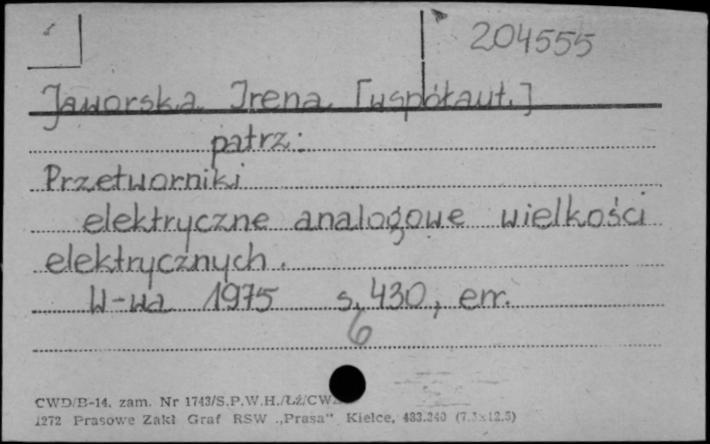 204555
Jaworska Irena [współaut.]
patrz:
Przetworniki
elektryczne analogowe wielkości
elektrycznych.
W-wa 1975 s. 430, err.
6
CWD/B-14. zam. Nr 1743/S.P.W.H./Łź/CW
1272 Prasowe Zakł Graf RSW „Prasa" Kielce, 483.240 (7.5x12.5)